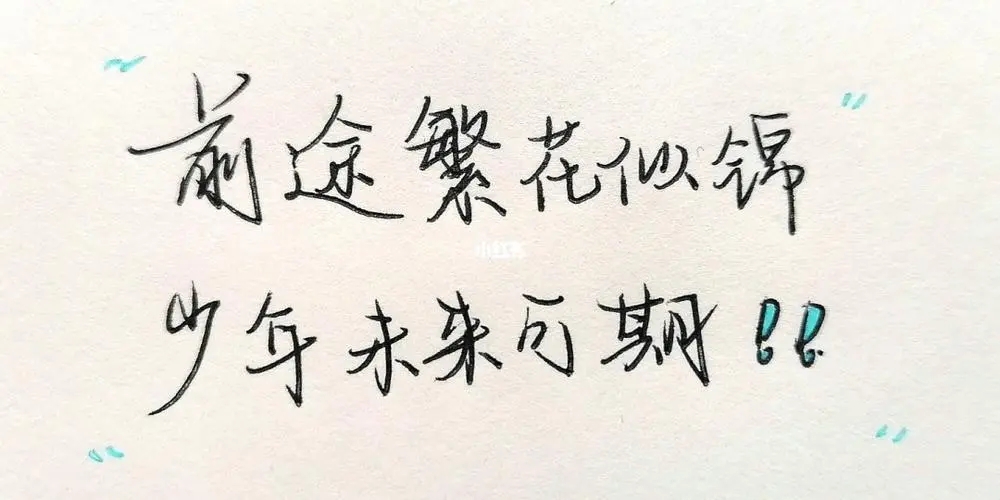 前途繁花似锦
小红书
少年未来可期!!